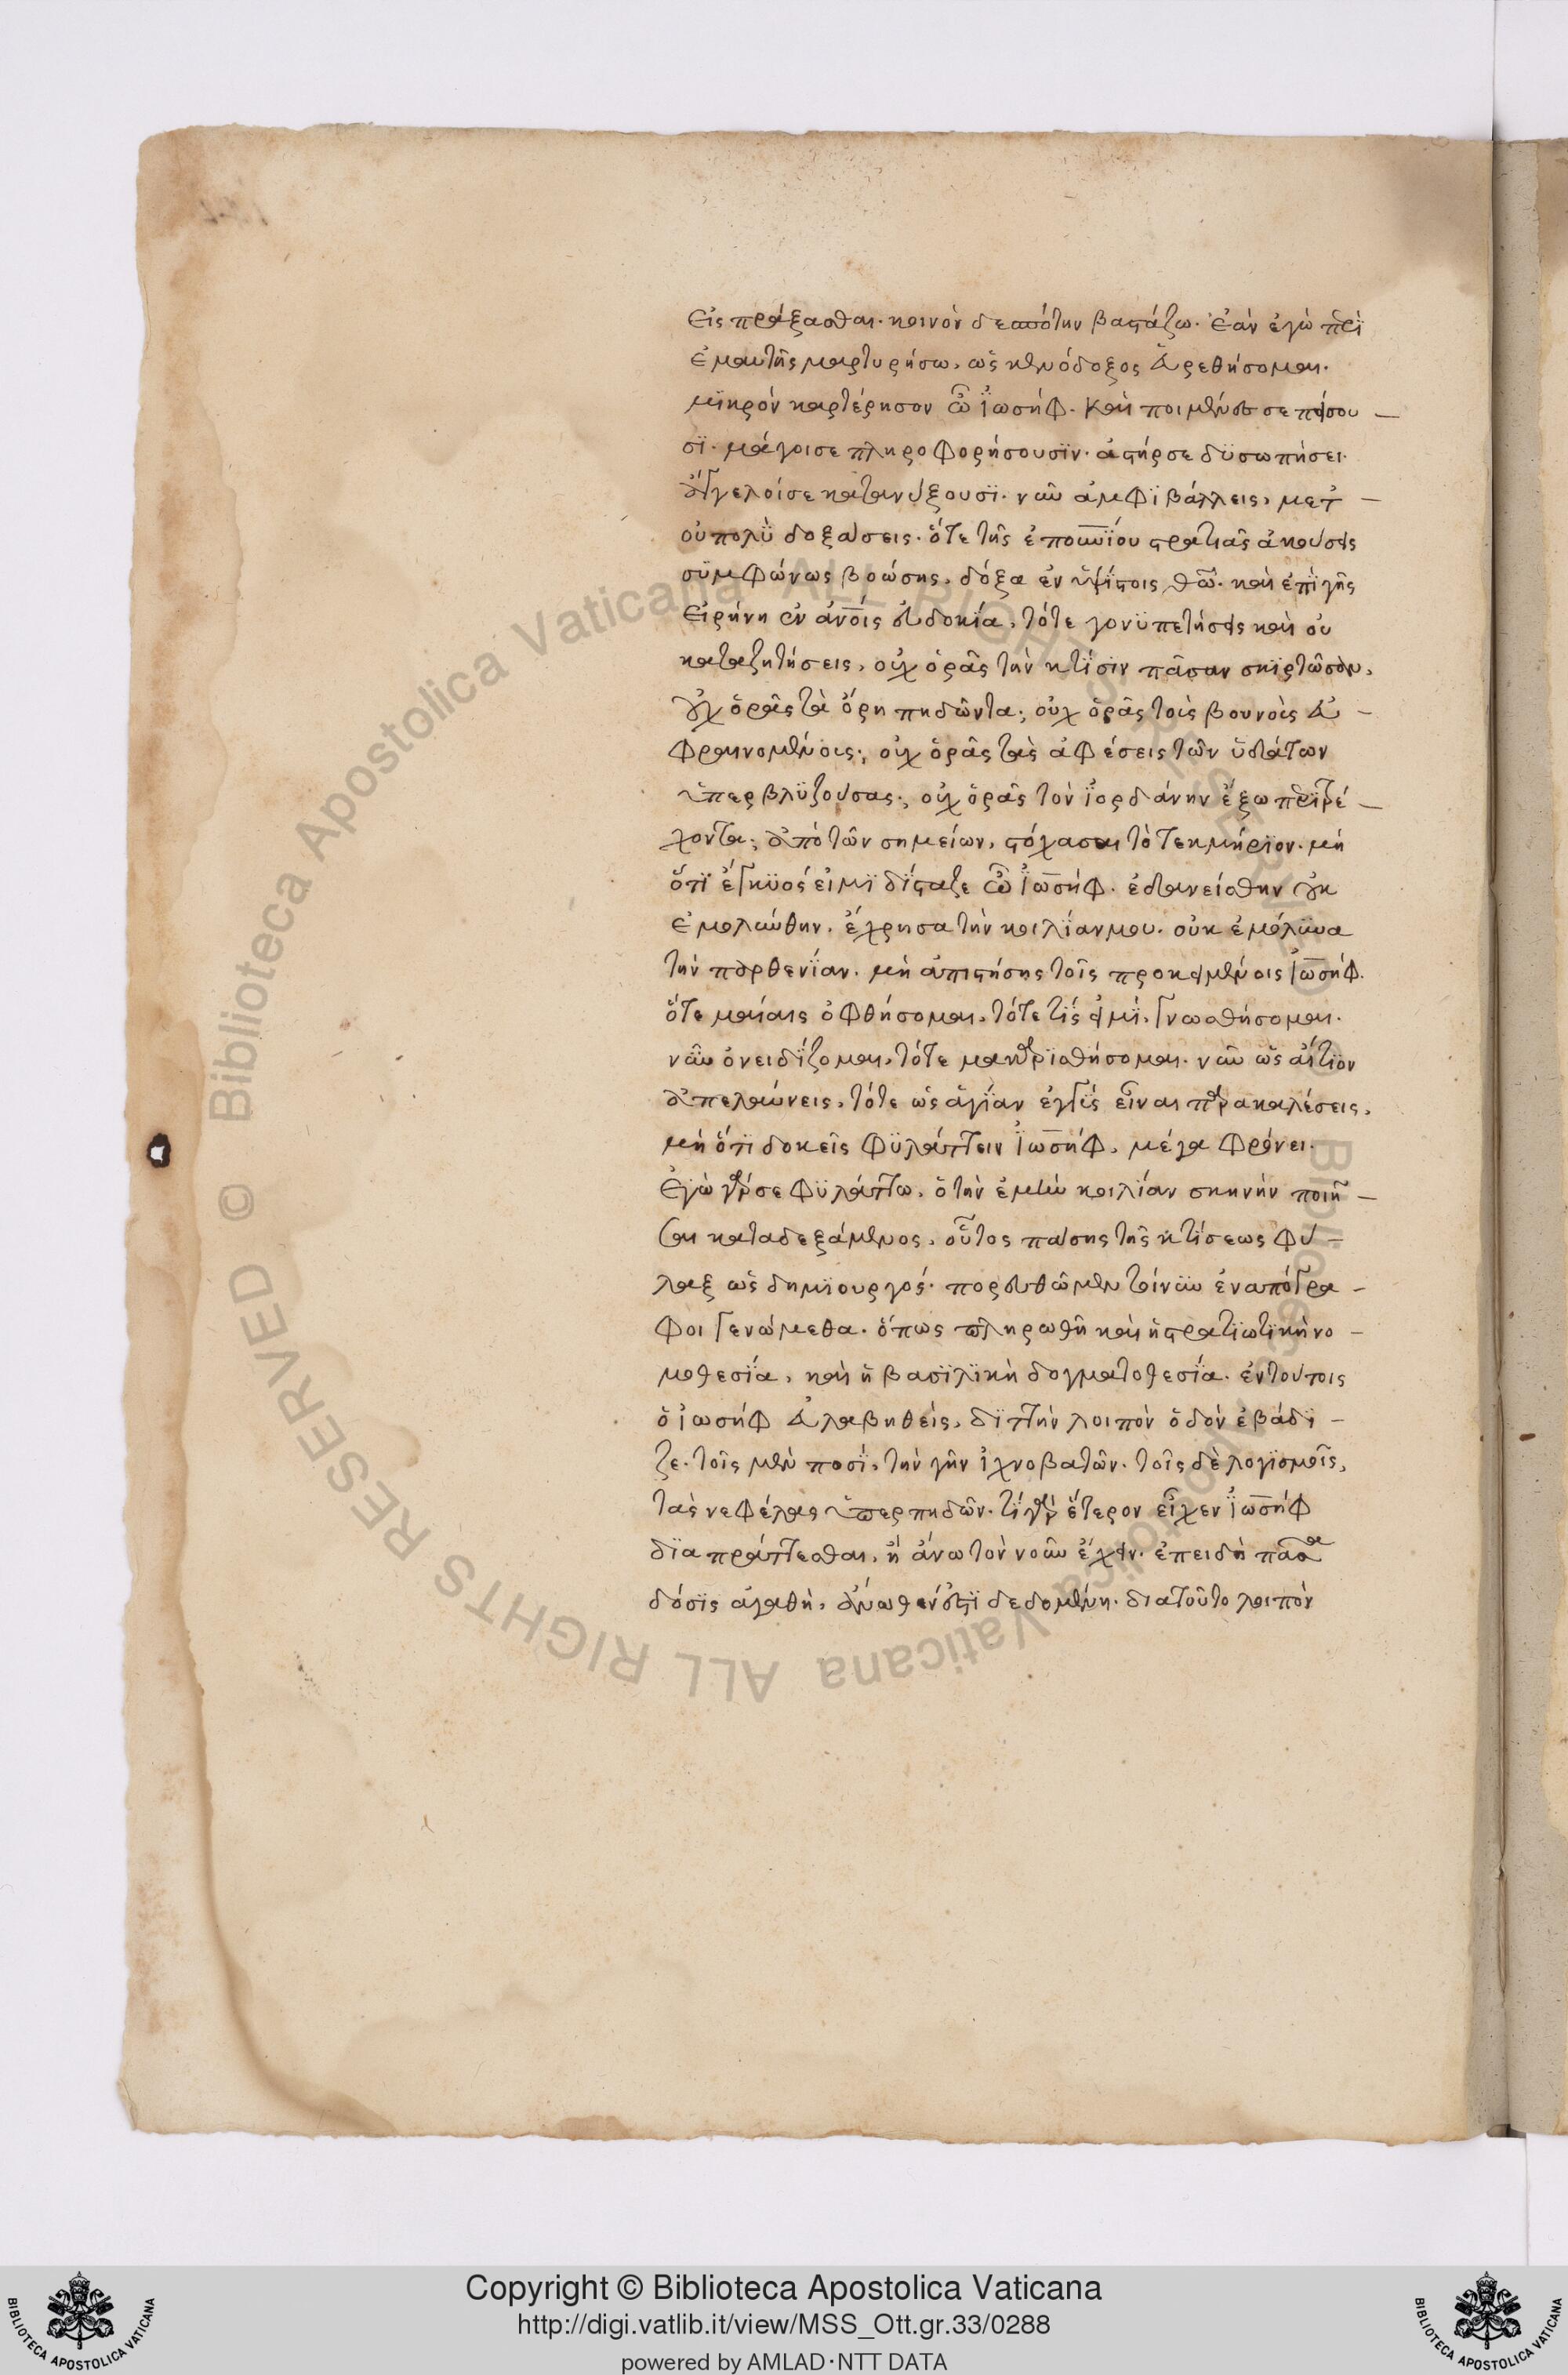 εἰσπράξασθαι· κοινὸν δεσπότην βαστάζω. ἐὰν ἐγὼ περὶ
ἐμαυτῆς μαρτυρήσω, ὡς κενόδοξος εὑρεθήσομαι.
μϊκρὸν καρτέρησον ὦ ἰωσήφ. καὶ ποιμένες σε πείσου
σϊ. μάγοι σε πληροφορήσουσϊν. ἀστήρ σε δϋσωπήσει.
ἄγγελοί σε κατανύξουσϊ. νῦν ἀμφϊβάλλεις, μετ
οὐ πολὺ δοξάσεις. ὅτε τῆς ἐπουνίου στρατιᾶς ἀκούσεις
σϋμφώνως βοώσης, δόξα ἐν ὑψίστοις θῶ. καὶ ἐπὶ γῆς
εἰρήνη ἐν ἀνοις εὐδοκία, τότε γονϋπετήσεις καὶ οὐ
καταζητήσεις, οὐχ ὁρᾶς τὴν κτίσϊν πᾶσαν σκϊρτῶσαν,
οὐχ ὁρᾶς τὰ ὄρη πηδῶντα; οὐχ ὁρᾶς τοὺς βουνοὺς εὐ
φραινομένους; οὐχ ὁρᾶς τὰς ἀφέσεις τῶν ὑδάτων
ὑπερβλϋζούσας; οὐχ ὁρᾶς τὸν ἰορδάνην ἔξω περϊτρέ
χοντα; ἀπὸ τῶν σημείων, στόχασαι τὸ τεκμήρϊον. μὴ
ὅτϊ ἔγκϋός εἰμϊ δίσταζε ὦ ἰωσήφ. ἐδανείσθην οὐκ
ἐμολύνθην. ἔχρησα τὴν κοιλίαν μου. οὐκ ἐμόλϋνα
τὴν παρθενίαν. μὴ ἀπιστήσης τοῖς προκειμένοις ἰωσήφ.
ὅτε μαίαις ὀφθήσομαι, τότε τίς εἰμϊ, γνωσθήσομαι.
νῦν ὀνειδίζομαι, τότε μακαρϊσθήσομαι. νῦν ὡς αἴτϊον
ἀπελαύνεις, τότε ὡς ἁγίαν ἐγγὺς εἶναι παρακαλέσεις,
μὴ ὅτϊ δοκεῖς φϋλάττειν ἰωσήφ, μέγα φρόνει.
ἐγὼ γάρ σε φϋλάττω. ὁ τὴν ἐμὴν κοιλίαν σκηνὴν ποιῆ
σαι καταδεξάμενος, οὗτος πάσης τῆς κτίσεως φύ
λαξ ὡς δημϊουργός. πορευθῶμεν τοίνϋν ἐν απόγρα
φοι γενώμεθα. ὅπως πληρωθῆ καὶ ἡ στρατϊωτϊκὴ νο
μοθεσία, καὶ ἡ βασϊλϊκὴ δογματοθεσία. ἐν τούτοις
ὁ ἰωσὴφ εὐλαβηθεὶς, διττὴν λοιπὸν ὁδὸν ἐβάδϊ
ζε. τοῖς μὲν ποσϊ, τὴν γῆν ἰχνοβατῶν. τοῖς δὲ λογϊσμοῖς,
τὰς νεφέλας ὑπερπηδῶν. τί γὰρ ἕτερον εἶχεν ἰωσὴφ
δϊαπράττεσθαι, ἢ ἄνω τὸν νοῦν ἔχειν. ἐπειδὴ πᾶσα
δόσϊς ἀγαθὴ, ἄνωθέν ἐστϊ δεδομένη. διατοῦτο λοιπὸν
Copyright © Biblioteca Apostolica Vaticana
http://digi.vatlib.it/view/MSS_Ott.gr.33/0288
powered by AMLAD·NTT DATA